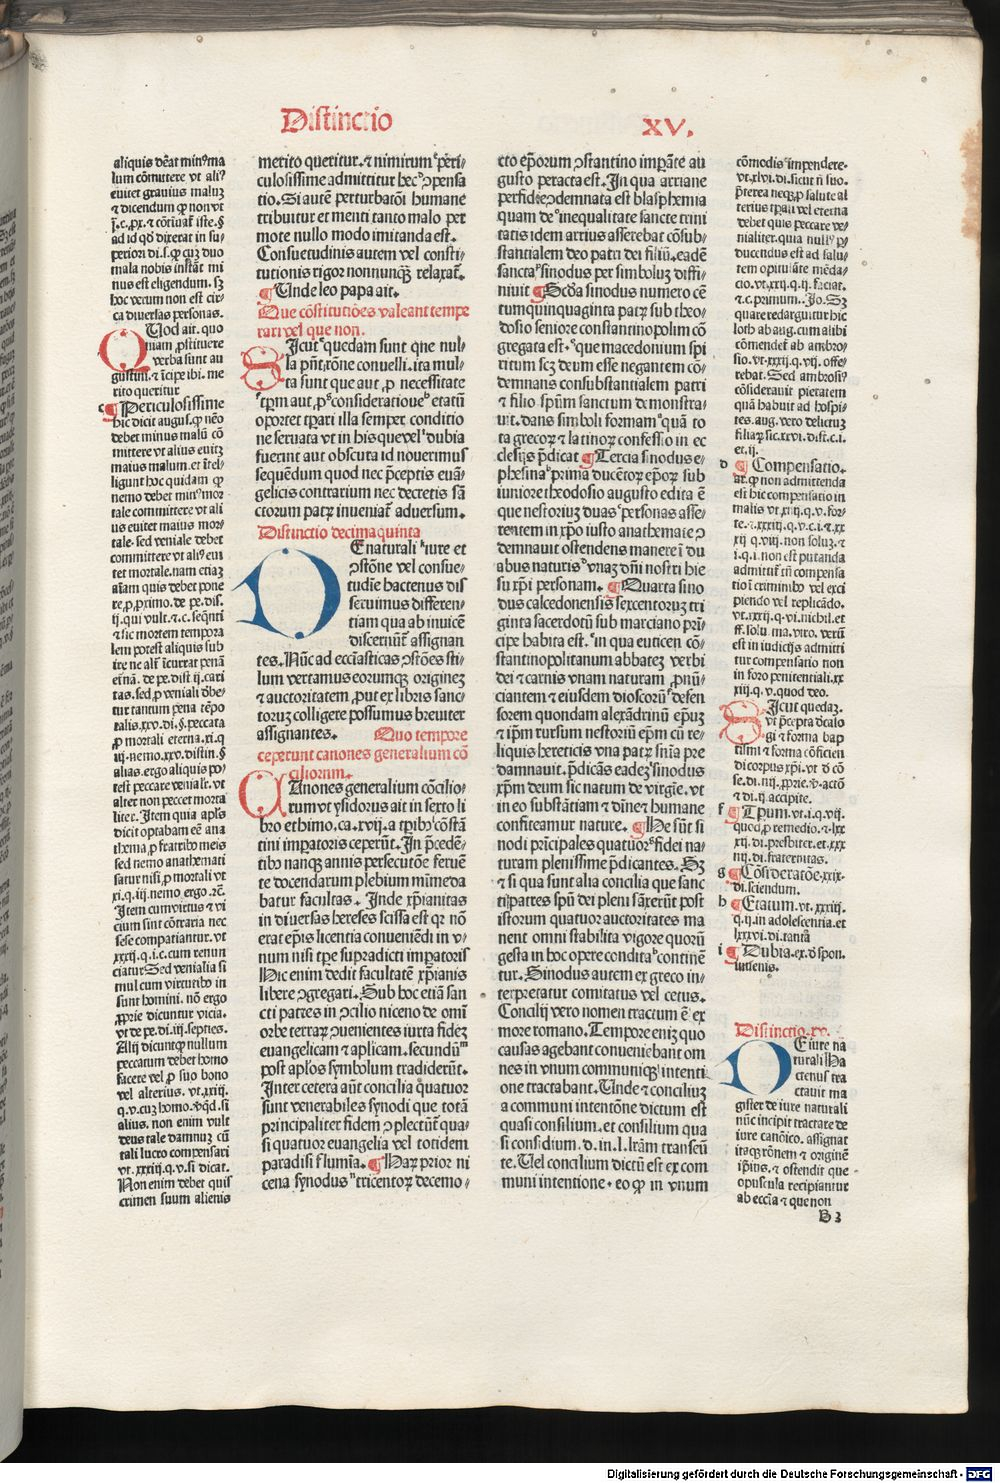 Distinctio
XV.
aliquis debeat minus ma
lum cōmittere vt ali⁹
euitet grauius maluz
⁊ dicendum ꝙ non vt
ad id qd dixerat in su⸗
periori di. s. ꝙ cuz duo
mala nobis instāt mi
nus est eligendum. sz
hoc verum non est cir⸗
ca diuersas personas.
Quod ait. quo
niam ꝓstituere
verba sunt au
gustini. ⁊ īcipe ibi. me
rito queritur
c ¶ Periculosissime
hic dicit augus. ꝙ nēo
debet minus malū cō
mittere vt alius euitz
maius malum. et ītel⸗
ligunt hoc quidam ꝙ
nemo debet min⁹ mor
tale committere vt ali
us euitet maius mor⸗
tale. sed veniale debet
committere vt ali⁹ eui
tet mortale. nam etiaz
aīam quis debet pone
re ꝓ ꝓximo. de pe. dis.
ij. qui vult. ⁊ c. seqn̄ti
⁊ sic mortem tempora
lem potest aliquis sub
ire ne alt̄ īcurrat penā
et̄nā. de pe. dist ij. cari
tas. sed ꝓ veniali dēbe⸗
tur tantum pena tēpo
ralis. xxv. di. §. peccata
ꝓ mortali eterna. xi. q
iij. nemo. xxv. distin. §
alias. ergo aliquis po⸗
test peccare veniale. vt
alter non peccet morta
liter. Item quia apl̄s
dicit optabam eē ana
thema ꝓ fratribꝰ meis
sed nemo anathemati
satur nisi ꝓ mortali vt
xi. q. iij. nemo. ergo ⁊c̄.
Item cum virtus ⁊ vi
cium sint cōtraria nec
sese compatiantur. vt
xxxij. q. i. c. cum renun
ciatur Sed venialia si
mul cum virtutibꝰ in
sunt homini. nō ergo
ꝓprie dicuntur vicia.
vt de pe. di. iij. septies.
Alij dicunt ꝙ nullum
peccatum debet homo
facere vel ꝓ suo bono
vel alterius. vt. xxiij.
q. v. cuz homo. ꝗd. si
alius. non enim vult
deus tale damnuz cū
tali lucro compensari
vt. xxxij. q. v. si dicat.
Non enim debet quis
crimen suum alienis
merito queritur. ⁊ nimirum ᶜperi⸗
culosissime admittitur hec ᵈↄpensa
tio. Si autē perturbatōi humane
tribuitur et menti tanto malo per
mote nullo modo imitanda est.
Consuetudinis autem vel consti⸗
tutionis rigor nonnunqꝫ relaxat̄.
¶ Unde leo papa ait.
Que cōstitutiōes valeant tempe
rari vel que non.
Sicut ᵉquedam sunt que nul⸗
la pn̄t. rōne conuelli. ita mul⸗
ta sunt que aut ꝓ necessitate
ᶠtꝑm aut. ꝓ ᵍconsideratioue ʰetatū
oꝑortet tꝑari illa semper conditio
ne seruata vt in his que vel ⁱdubia
fuerint aut obscura id nouerimus
sequēdum quod nec p̄ceptis euā⸗
gelicis contrarium nec decretis sā
ctorum patrꝝ inueniat̄ aduersum.
Distinctio decimaquinta
De naturali ᵏiure et
ↄstōne vel consue⸗
tudīe hactenus dis
seruimus differen⸗
tiam qua ab inuicē
discernūt̄ assignan
tes. Nūc ad eccl̄asticas ↄstōes sti⸗
lum vertamus eorumqꝫ originez
⁊ auctoritatem ꝓut ex libris sanc⸗
toruz colligere possumus breuiter
assignantes. Quo tempore
ceperunt canones generalium cō
ciliorum.
Canones generalium cōcilio⸗
rum vt ysidorus ait in sexto li
bro ethimo. ca. xvij. a tꝑibꝰ cōstā
tini imꝑatoris ceperūt. In p̄cedē⸗
tibꝰ nanqꝫ annis persecutōe feruē
te docendarum plebium minime da
batur facultas. Inde xp̄ianitas
in diuersas hereses scissa est qꝛ nō
erat ep̄is licentia conueniēdi in v⸗
num nisi tꝑe supradicti imꝑatoris
Hic enim dedit facultatē xp̄ianis
libere ↄgregari. Sub hoc etiā san
cti patres in ↄcilio niceno de omī
orbe terraꝝ ↄuenientes iuxta fidez
euangelicam ⁊ apl̄icam. secundū ᵐ
post apl̄os symbolum tradiderūt.
Inter cetera aūt concilia quatuor
sunt venerabiles synodi que totā
principaliter fidem ↄplectūt̄ qua⸗
si quatuor euangelia vel totidem
paradisi flumīa. ¶ Haꝝ prior ni
cena synodus ⁿtricentoꝝ decemo⸗
cto ep̄orum ↄstantino imꝑāte au
gusto peracta est. In qua arriane
perfidie ↄdemnata est blasphemia
quam de ᵒinequalitate sancte trini
tatis idem arrius asserebat cōsub⸗
stantialem deo patri dei filiū. eadē
sancta ᵖsinodus per simboluz diffi⸗
niuit ¶ Scd̄a sinodus numero cē
tum quinquaginta patꝝ sub theo⸗
dosio seniore constantinopolim cō
gregata est. que macedonium spi
ritum scz deum esse negantem cō⸗
demnans consubstantialem patri
⁊ filio spm̄ sanctum demonstra⸗
uit. dans simboli formam ᵠquā to
ta grecoꝝ ⁊ latinoꝝ confessio in ec
clesijs p̄dicat ¶ Tercia sinodus e⸗
phesina ʳprima ducētoꝝ ep̄oꝝ sub
iuniore theodosio augusto edita ē
que nestoriuz duas ˢpersonas asse⸗
rentem in xp̄o iusto anathemate ↄ
demnauit ostendens manere ī du
abus naturis ᵗvnaz dn̄i nostri hie
su xp̄i personam. ¶ Quarta sino
dus calcedonensis sexcentoruz tri
ginta sacerdotū sub marciano prī
cipe habita est. ᵘin qua euticen cō⸗
stantinopolitanum abbatez verbi
dei ⁊ carnis vnam naturam ꝓnū⸗
ciantem ⁊ eiusdem dioscorū ˣdefen
sorem quondam alexādrinū ep̄uz
⁊ ip̄m rursum nestoriū ep̄m cū re⸗
liquis hereticis vna patꝝ sn̄ia pre
damnauit. p̄dicās eadez ʸsinodus
xp̄m deum sic natum de virgīe. vt
in eo substātiam ⁊ dīnez ⁊ humane
confiteamur nature. ¶ He sūt si
nodi prīcipales quatuor ᶻfidei na⸗
turam plenissime p̄dicantes. Sz
⁊ si qua sunt alia concilia que sanc
ti pattes spū dei pleni sāxerūt post
istorum quatuor auctoritates ma
nent omni stabilita vigore quorū
gesta in hoc opere condita ᵇcontinē
tur. Sinodus autem ex greco in⸗
terpretatur comitatus vel cetus.
Concilij vero nomen tractum ē ex
more romano. Tempore eniz quo
causas agebant conueniebant om
nes in vnum communiqꝫ intenti
one tractabant. Unde ⁊ conciliuz
a communi intentōne dictum est
quasi consilium. et consilium qua
si considium. d. in. l. lr̄am transeū
te. Uel concilium dictū est ex com
muni intentione. eo ꝙ in vnum
cōmodis impendere.
vt. xlvi. di. sicut n̄ suo.
p̄terea neqꝫ ꝓ salute al
terius tꝑali vel eterna
debet quis peccare ve⸗
nialiter. quia null⁹ ꝑ
ducendus est ad salu⸗
tem opitulāte mēda⸗
cio. vt. xxij. q. ij. faciat.
⁊ c. primum. Jo. Sz
quare redarguitur hic
loth ab aug. cum alibi
cōmendet̄ ab ambro⸗
sio. vt. xxxij. q. vij. offe⸗
rebat. Sed ambrosi⁹
cōsiderauit pietatem
quā habuit ad hospi⸗
tes. aug. vero delictuz
filiaꝝ sic. xxvi. dist. c. i.
et. ij.
d ¶ Compensatio.
ar. ꝙ non admittenda
est hic compensatio in
malis vt. xiiij. q. v. for⸗
te. ⁊. xxxiij. q. v. c. i. ⁊. xx
xij q. viij. non soluz. ⁊
i. q. i. non est putanda
admittit̄ tn̄ compensa
tio ī criminibꝰ vel exci
piendo vel replicādo.
vt. xxxij. q. vi. nichil. et
ff. solu. ma. viro. verū
est in iudicijs admitti
tur compensatio non
in foro penitenciali. xx
xiij. q. v. quod deo.
Sicut quedaz.
vt p̄cepta dcalo
gi ⁊ forma bap
tismi ⁊ forma cōficien
di corpus xp̄i. vt d̄ cō
se. di. iiij. ꝓprie. ⁊̄ actō
⁊ di. ij. accipite.
f ¶ Tꝑum. vt. i. q. vij.
quod ꝓ remedio. ⁊ lxx
xij. di. presbiter. et. xxx
iiij. di. fraternitas.
g ¶ Cōsideratōe. xxix.
di. sciendum.
h ¶ Etatum. vt. xxiij.
q. ij. in adolescentia. et
lxxxvi. di. tanta
i ¶ Dubia. ex. d̄ spon.
iuuenis.
Distinctio. xv.
De iure na
turali Ha
ctenꝰ tra
ctauit ma
gister de iure naturali
nūc incipit tractate de
iure canōico. assignat
itaqꝫ rōnem ⁊ originē
ip̄ius. ⁊ ostendit que
opuscula recipiantur
ab eccl̄ia ⁊ que non
B 3
Digitalisierung gefördert durch die Deutsche Forschungsgemeinschaft - DFG